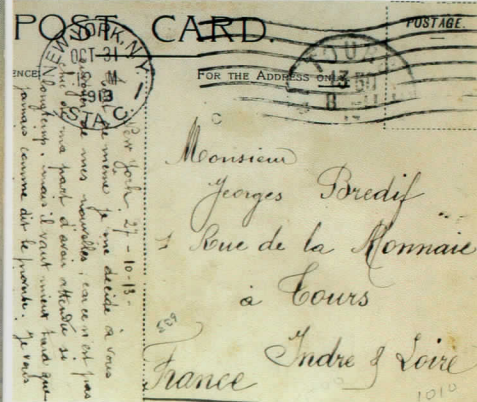 POST CARD.
POSTAGE.
NEW YORK, N.Y.
OCT 31
M
1913
STA. C
1
TOURS
13 50
8
ENCE
FOR THE ADDRESS ONLY
Monsieur
Georges Bredif
7 Rue de la Monnaie
à Tours
Indre & Loire
France
589
1010
New York 27-10-13.
même je me decide à vous
de mes nouvelles, ce n'est pas
de ma part d'avoir attendu si
longtemp, mais il vaut mieux tard que
jamais comme dit le proverbe. Je vais